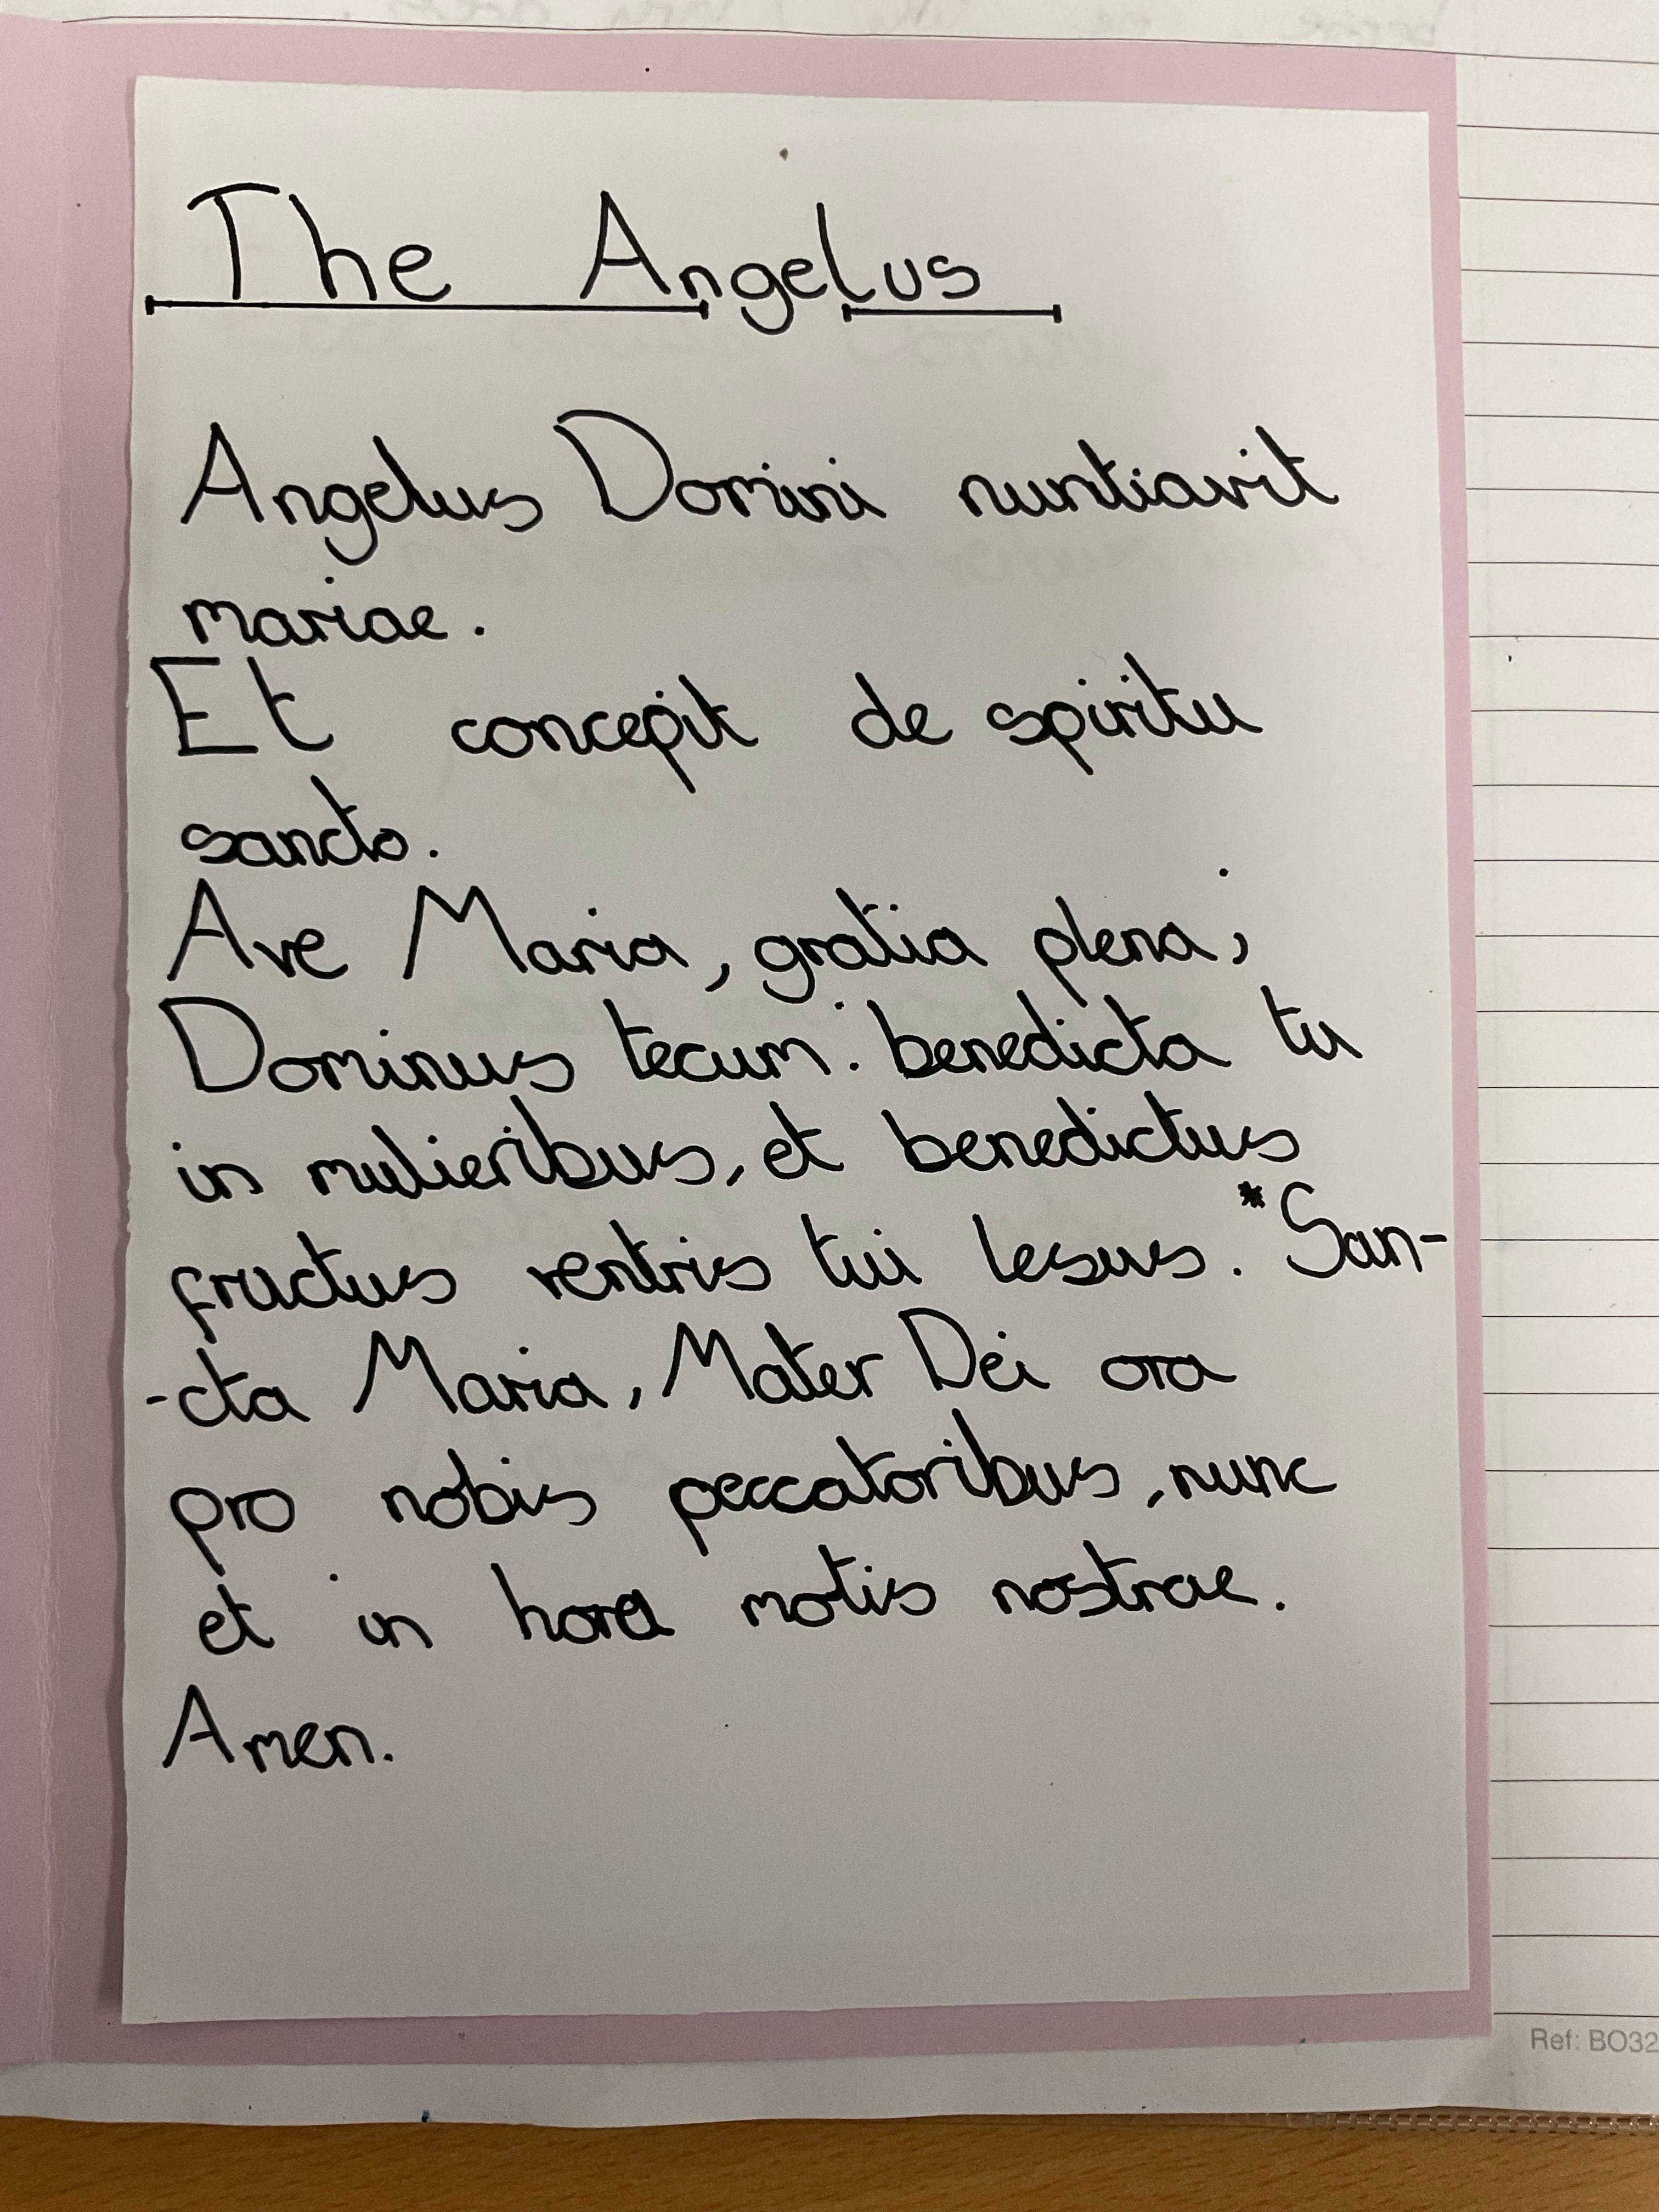 The Angelus
Angelus Domini nuntiavit
mariae.
Et concepit de spiritu
sancto.
Ave Maria, gratia plena;
Dominus tecum: benedicta tu
in mulieribus, et benedictus
fructus ventris tui Iesus. *San-
-cta Maria, Mater Dei ora
pro nobis peccatoribus, nunc
et in hora motis nostrae.
Amen.
Ref: BO32